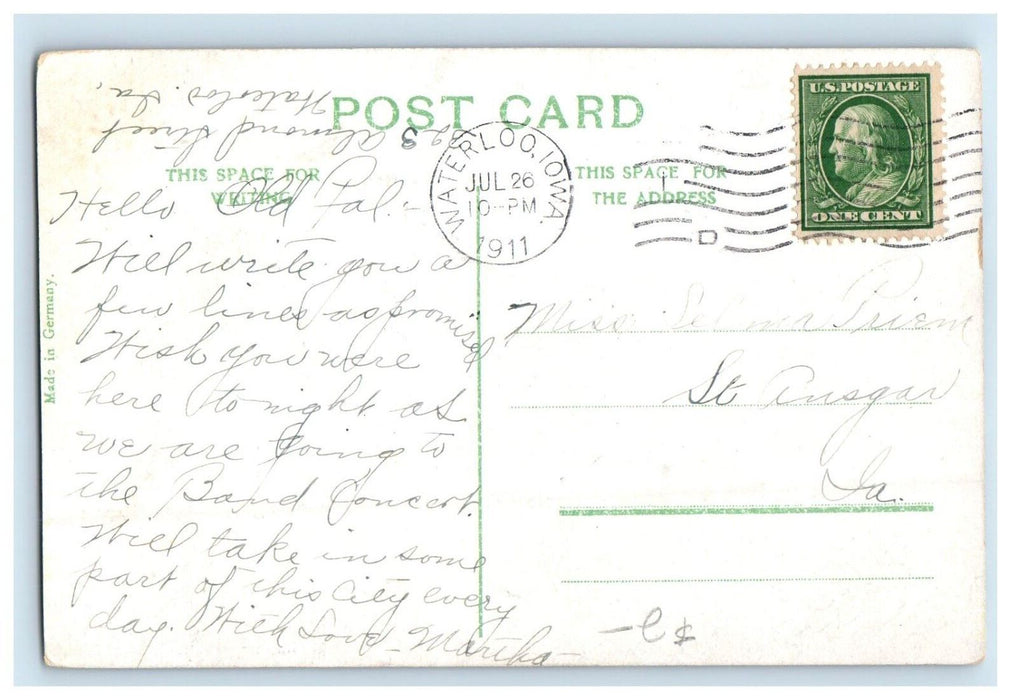 POST CARD
THIS SPACE FOR
WRITING
THIS SPACE FOR
THE ADDRESS
WATERLOO, IOWA.
JUL 26
10-PM
1911
1
D
U.S. POSTAGE
ONE CENT
Made in Germany.
Almond Street
Waterloo. Ia,
Hello Old Pal. -
Will write you a
few lines as promised
Wish you were
here tonight as
we are going to
the Band Concert.
Will take in some
part of this City every
day. With Love - Martha -
Miss Selma
St Ansgar
Ia.